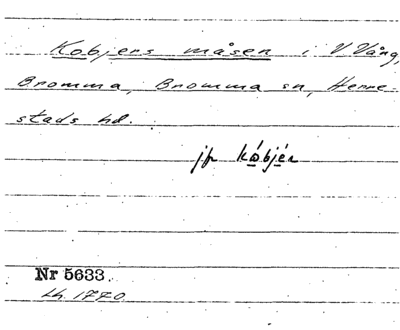 Kobjers måsen i V Vång,
Bromma, Bromma sn, Herre-
stads hd.
jfr kóbjér
Nr 5633.
Lh. 1770